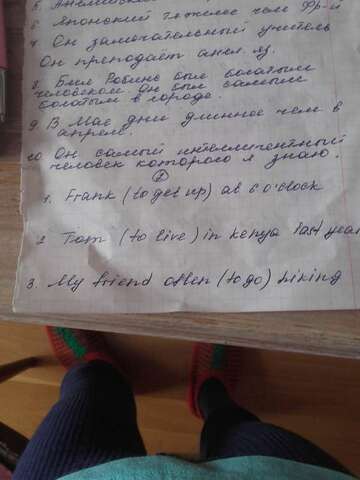 6. Японский тяжелее чем Фр-й
7. Он замечательный учитель
Он преподаёт англ. яз.
8. Бил Робинс был богатым
человеком. Он был самым
богатым в городе.
9. В Мае дни длиннее чем в
апреле.
10. Он самый интеллигентный
человек которого я знаю.
1. Frank (to get up) at 6 o'clock
2. Tom (to live) in kenya last year
3. My friend often (to go) hiking